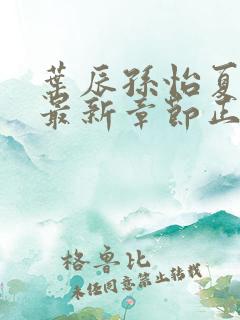 葉辰孫怡夏
最新章節正
格魯比
未任同意禁止转载